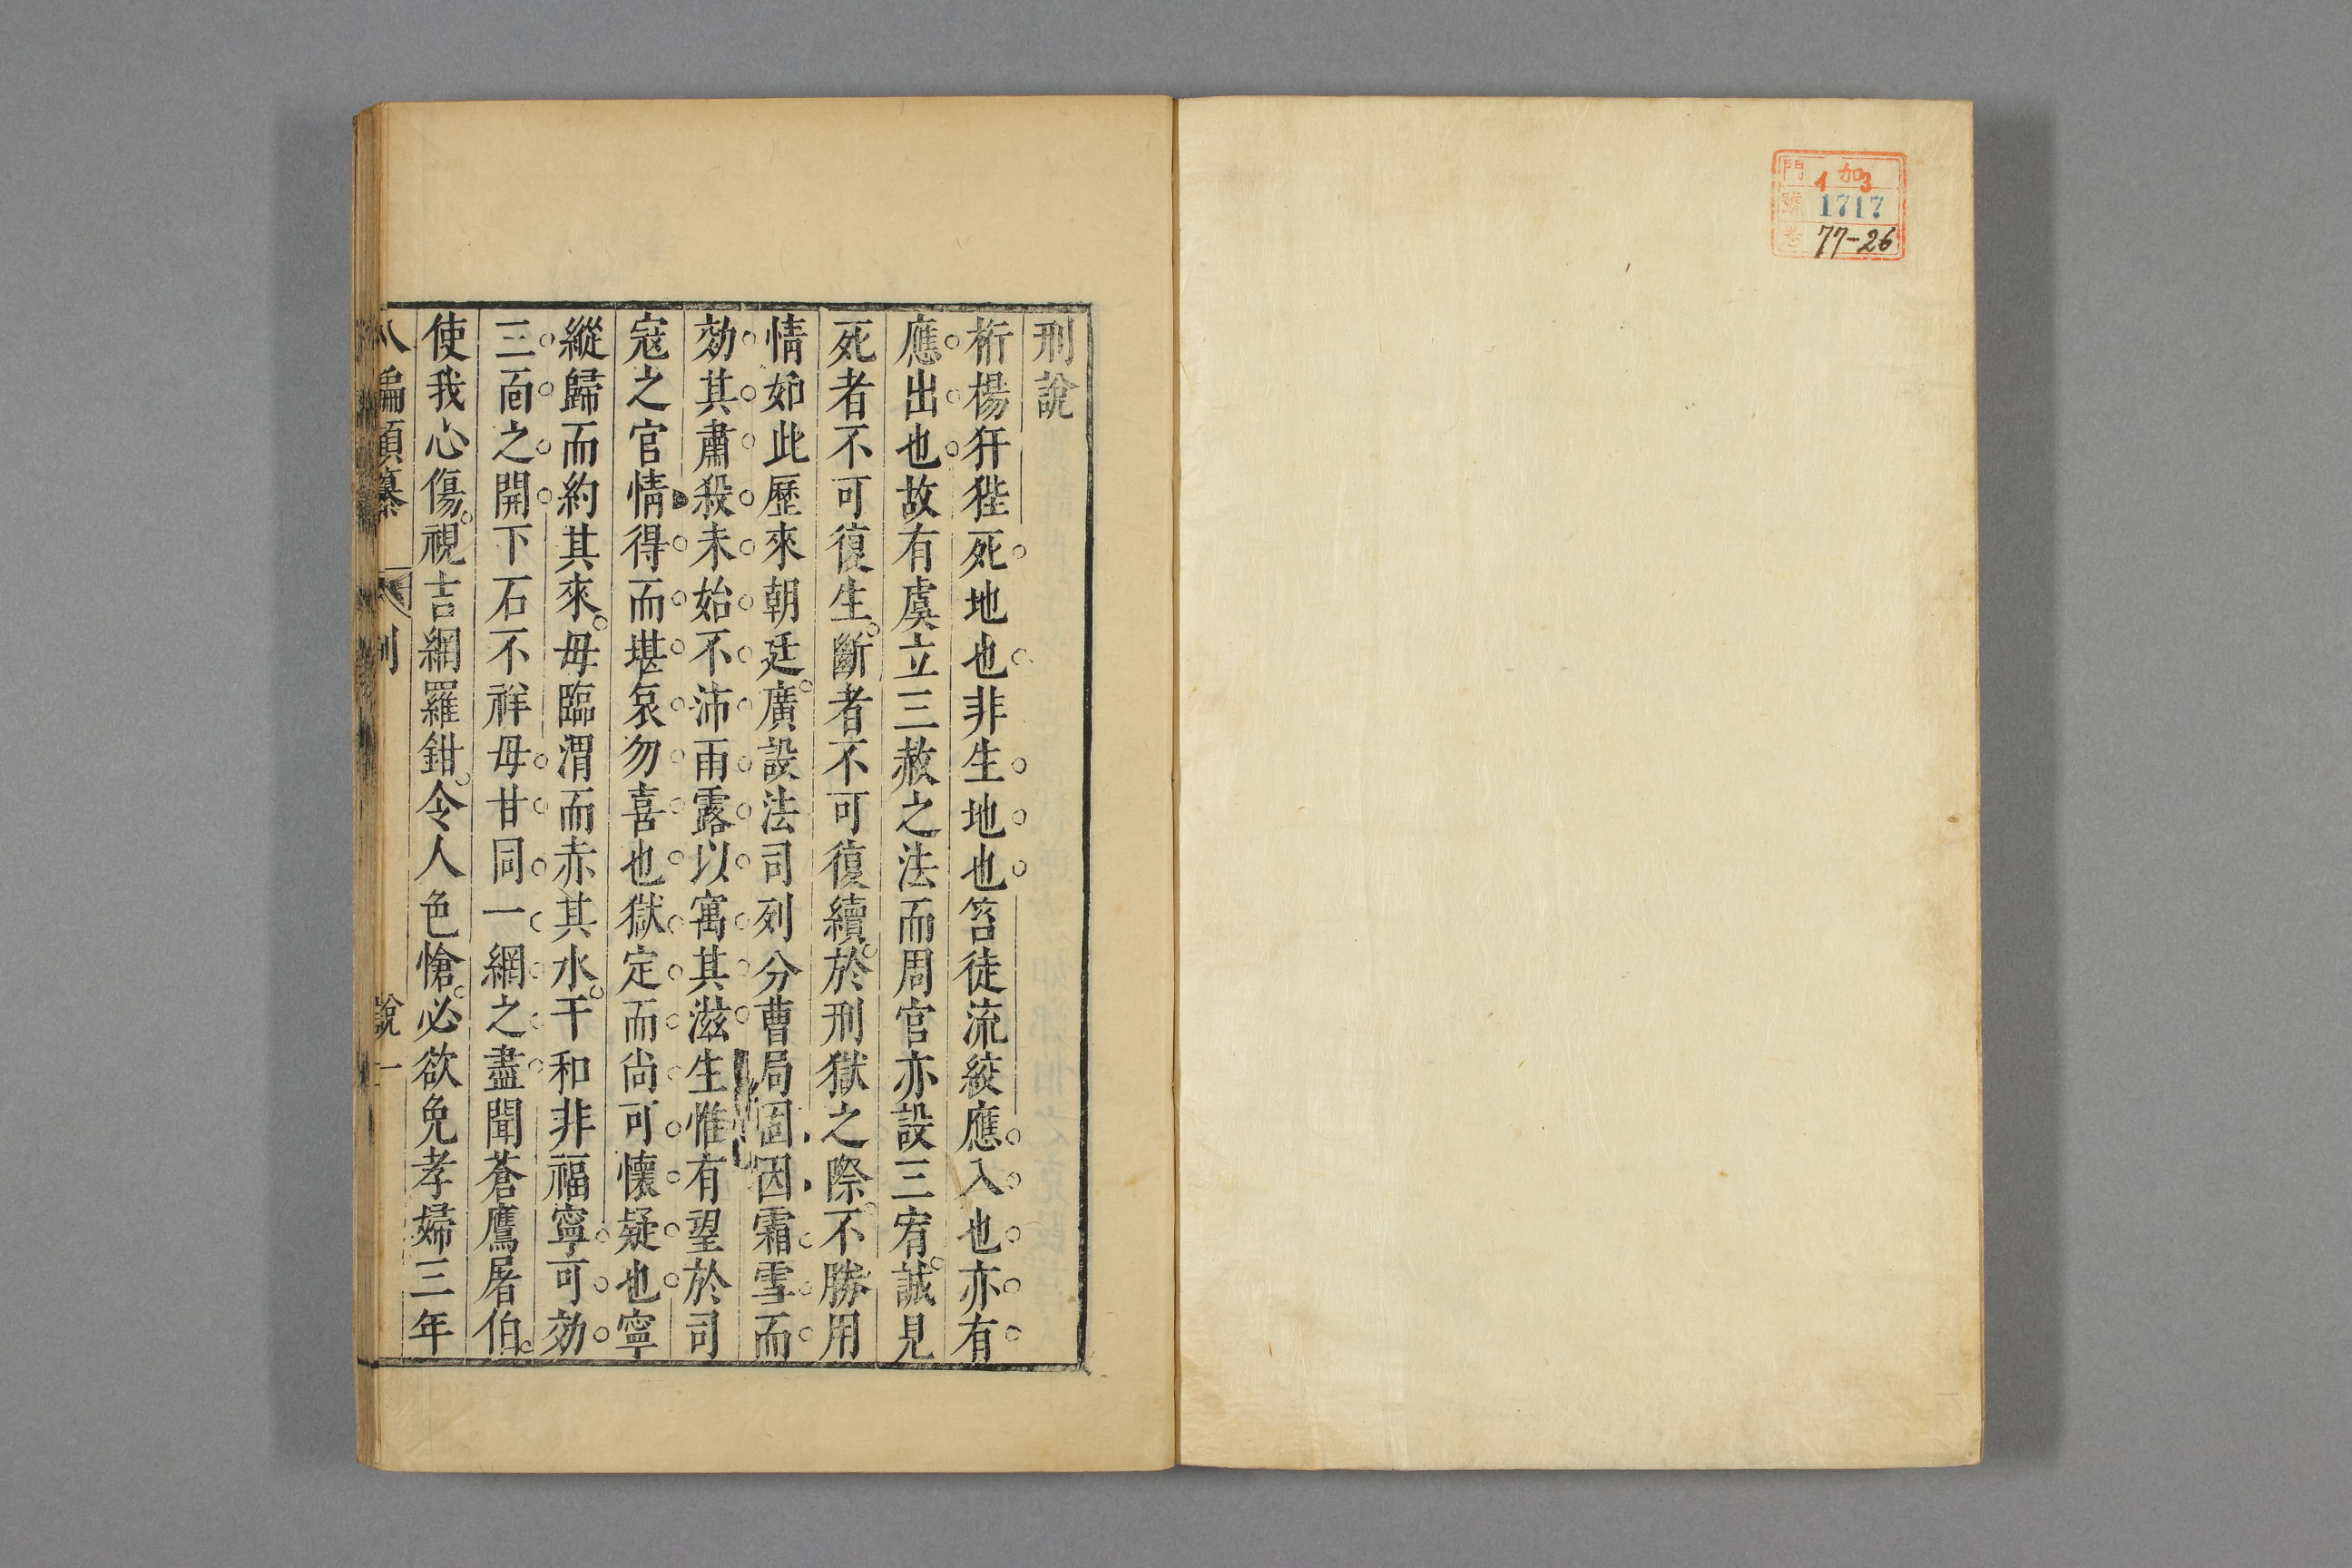 門 イ 加3
號 1717
卷 77-26
刑說
桁楊犴狴死地也非生地也笞徒流絞應入也亦有
應出也故有虞立三赦之法而周官亦設三宥誠見
死者不可復生斷者不可復續於刑獄之際不勝用
情如此歷來朝廷廣設法司列分曹局固因霜雪而
効其肅殺未始不沛雨露以寓其滋生惟有望於司
寇之官情得而堪哀勿喜也獄定而尚可懷疑也寧
縱歸而約其來毋臨渭而赤其水干和非福寧可効
三面之開下石不祥毋甘同一網之盡聞蒼鷹屠伯
使我心傷視吉網羅鉗令人色愴必欲免孝婦三年
八編類纂 刑 說 一